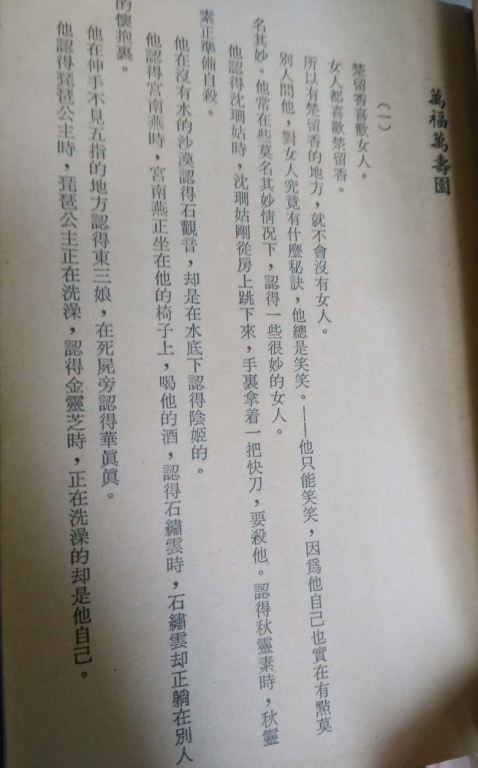 萬福萬壽園
（一）
楚留香喜歡女人。
女人都喜歡楚留香。
所以有楚留香的地方，就不會沒有女人。
別人問他，對女人究竟有什麼秘訣，他總是笑笑。——他只能笑笑，因爲他自己也實在有點莫
名其妙。他常在些莫名其妙情況下，認得一些很妙的女人。
他認得沈珊姑時，沈珊姑剛從房上跳下來，手裏拿着一把快刀，要殺他。認得秋靈素時，秋靈
素正準備自殺。
他在沒有水的沙漠認得石觀音，却是在水底下認得陰姬的。
他認得宮南燕時，宮南燕正坐在他的椅子上，喝他的酒，認得石繡雲時，石繡雲却正躺在別人
的懷抱裏。
他在伸手不見五指的地方認得東三娘，在死屍旁認得華眞眞。
他認得琵琶公主時，琵琶公主正在洗澡，認得金靈芝時，正在洗澡的却是他自己。